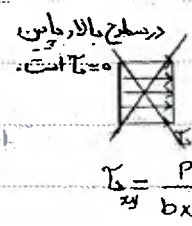 در سطوح بالا و پایین
τ = 0 است.
τxy = P
bx